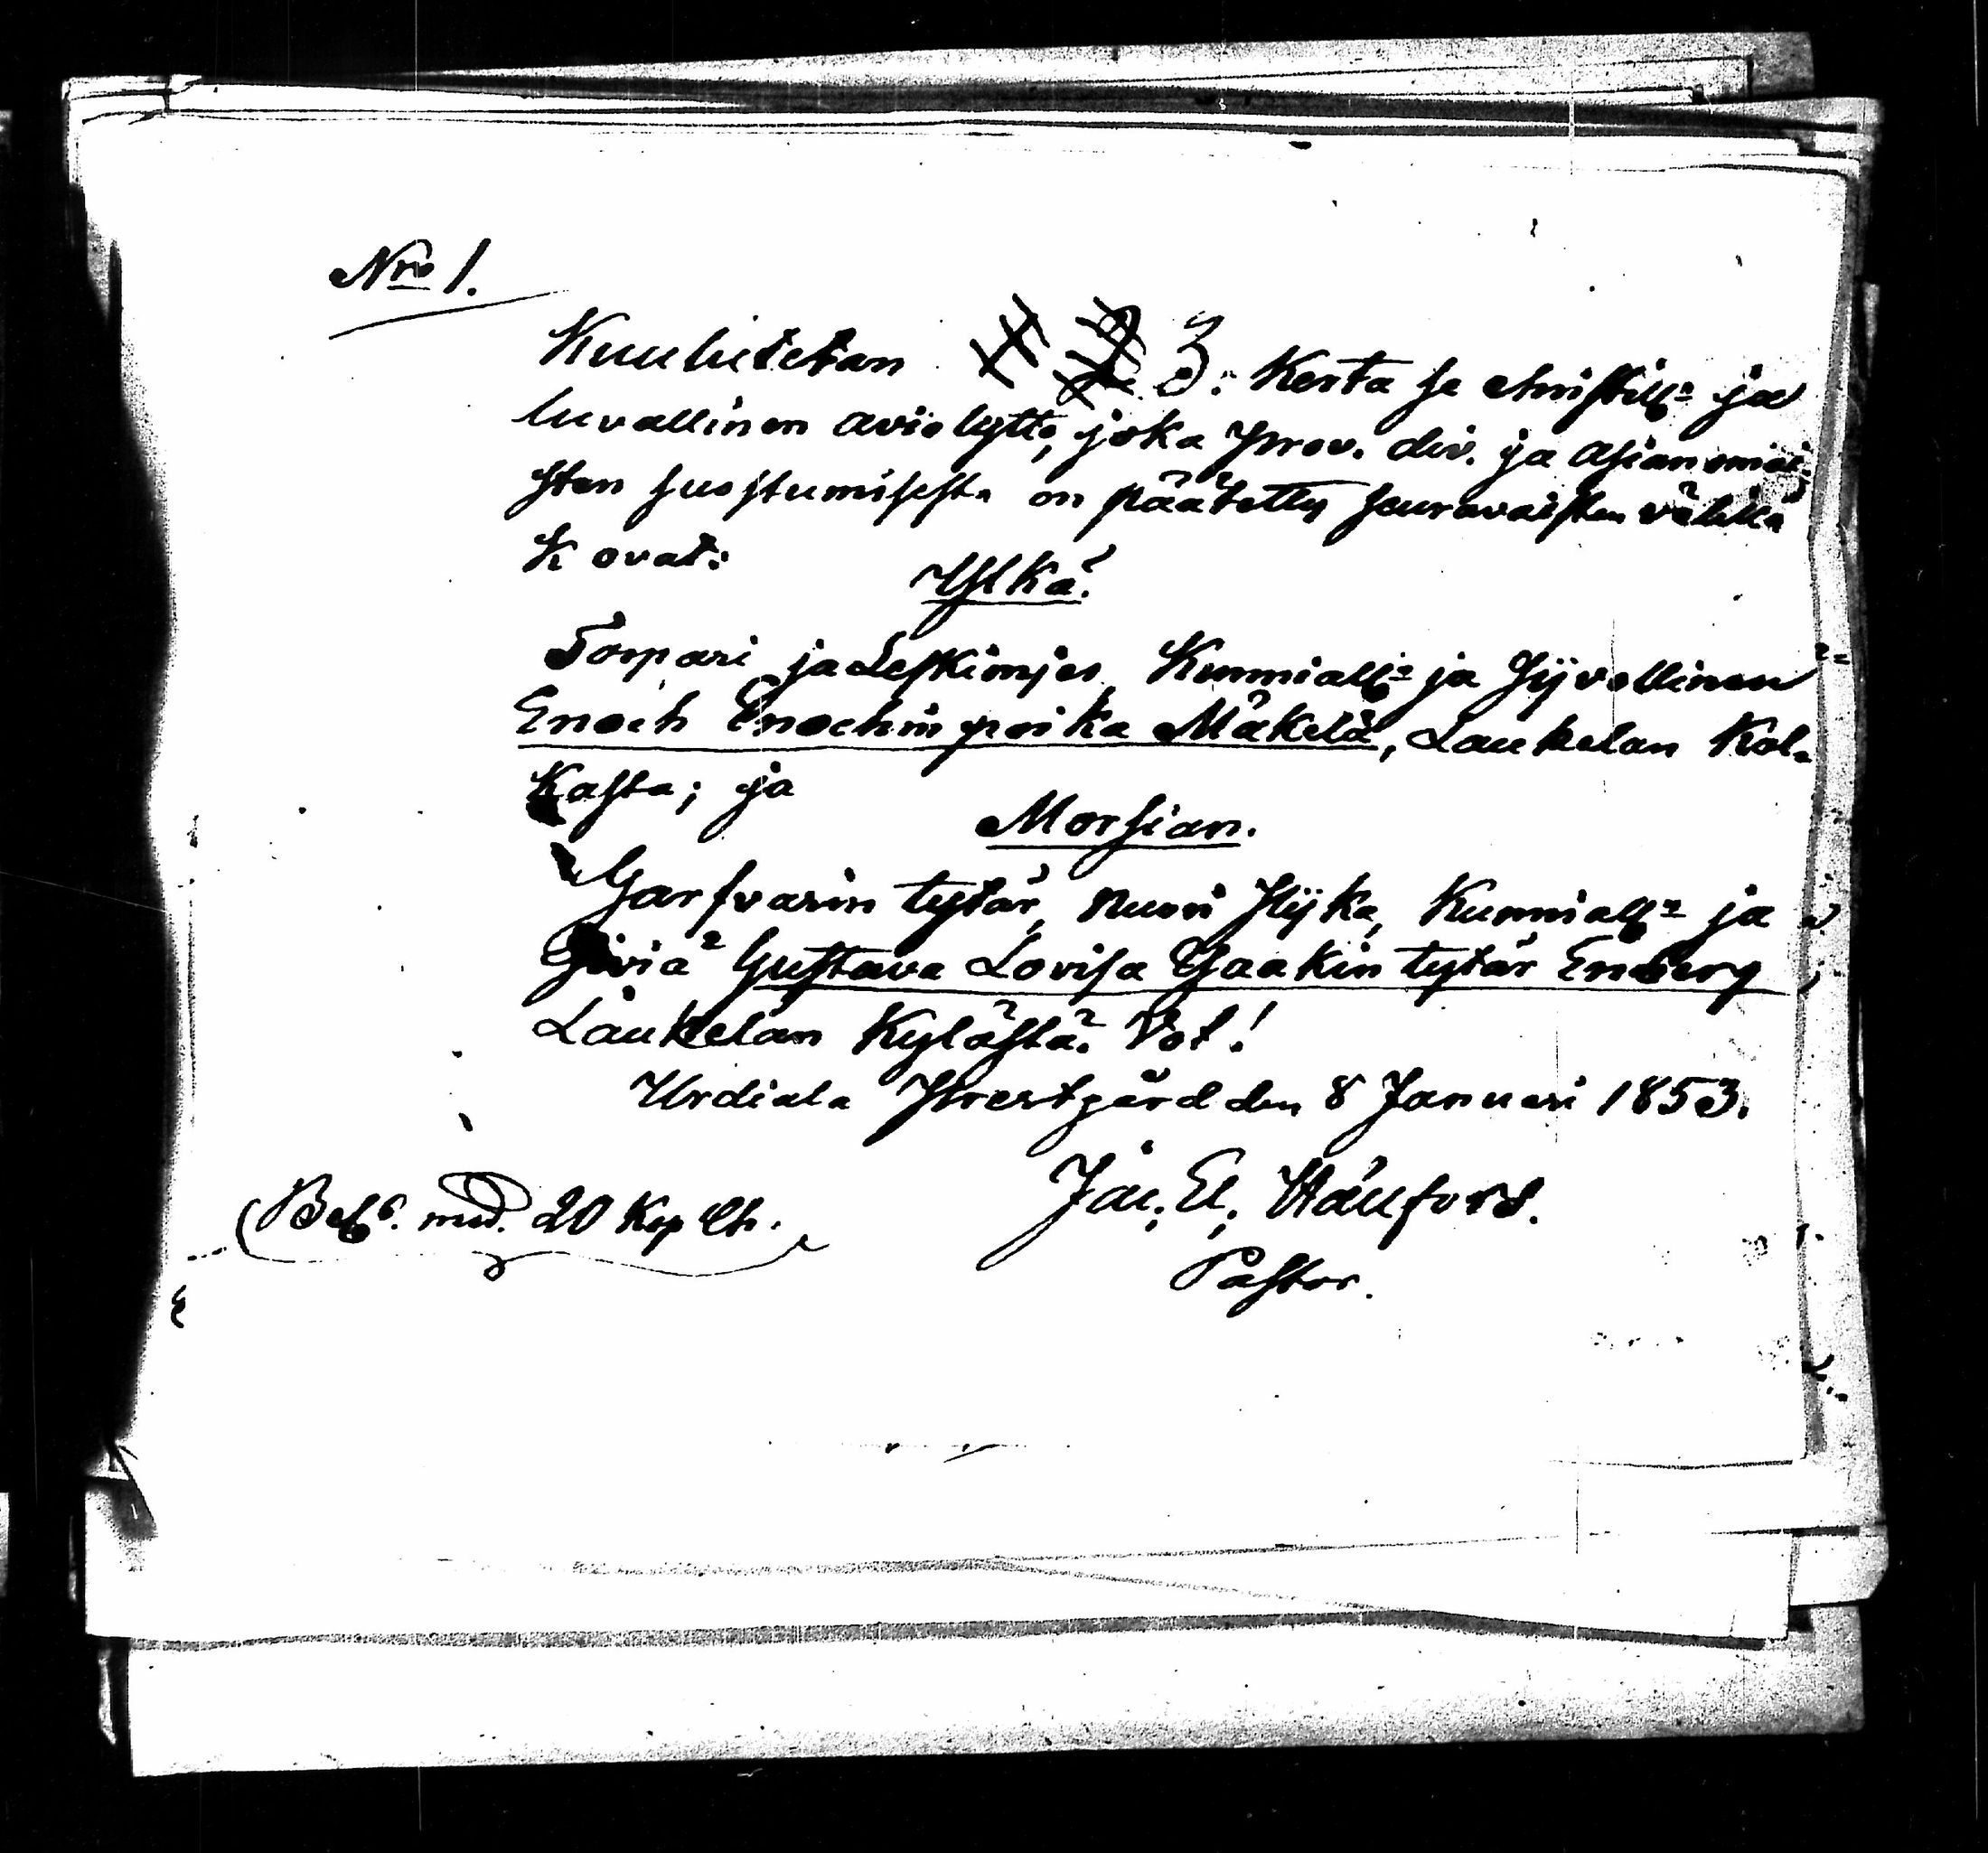 Nro 1.
Kuulutetan 3: Kerta se christill: ja
luvallinen avioliytto, joka prov. div. ja asianomai-
sten suostumisesta on päätetty seuravaisten välillä
K ovat:
Ylkä.
Torpari ja Leskimies, Kunniall: ja Syvollinen
Enoch Enochin poika Mäkelä, Laukelan Kol-
kasta; ja
Morsian.
Garfvarin tytär, nuori Pijka, Kunniall: ja
Siviä Gustava Lovisa Jaakin tytär Enberg
Laukelan Kylästä. Vot!
Urdiala Prestgård den 8 Januari 1853.
Pastor.
Bets. med. 20 Kop